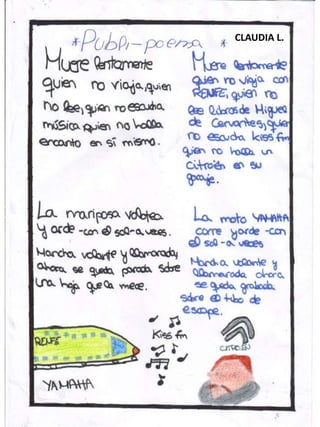 *Publi-poema*
CLAUDIA L.
Muere lentamente
quien no viaja, quien
no lee, quien no escucha
música, quien no halla
encanto en sí mismo.
Muere lentamente
quien no viaja con
RENFE, quien no
lee libros de Miguel
de Cervantes, quien
no escucha kiss fm
quien no halla un
Citroën en su
garaje.
La mariposa volotea
y arde -con el sol- a veces.
Mancha volante y llamarada,
ahora se queda parada sobre
una hoja que la mece.
La moto YAMAHA
corre y arde -con
el sol- a veces
Mancha volante y
llamarada ahora
se queda grabada
sobre el tubo de
escape.
RENFE
Kiss fm
CITROËN
YAMAHA